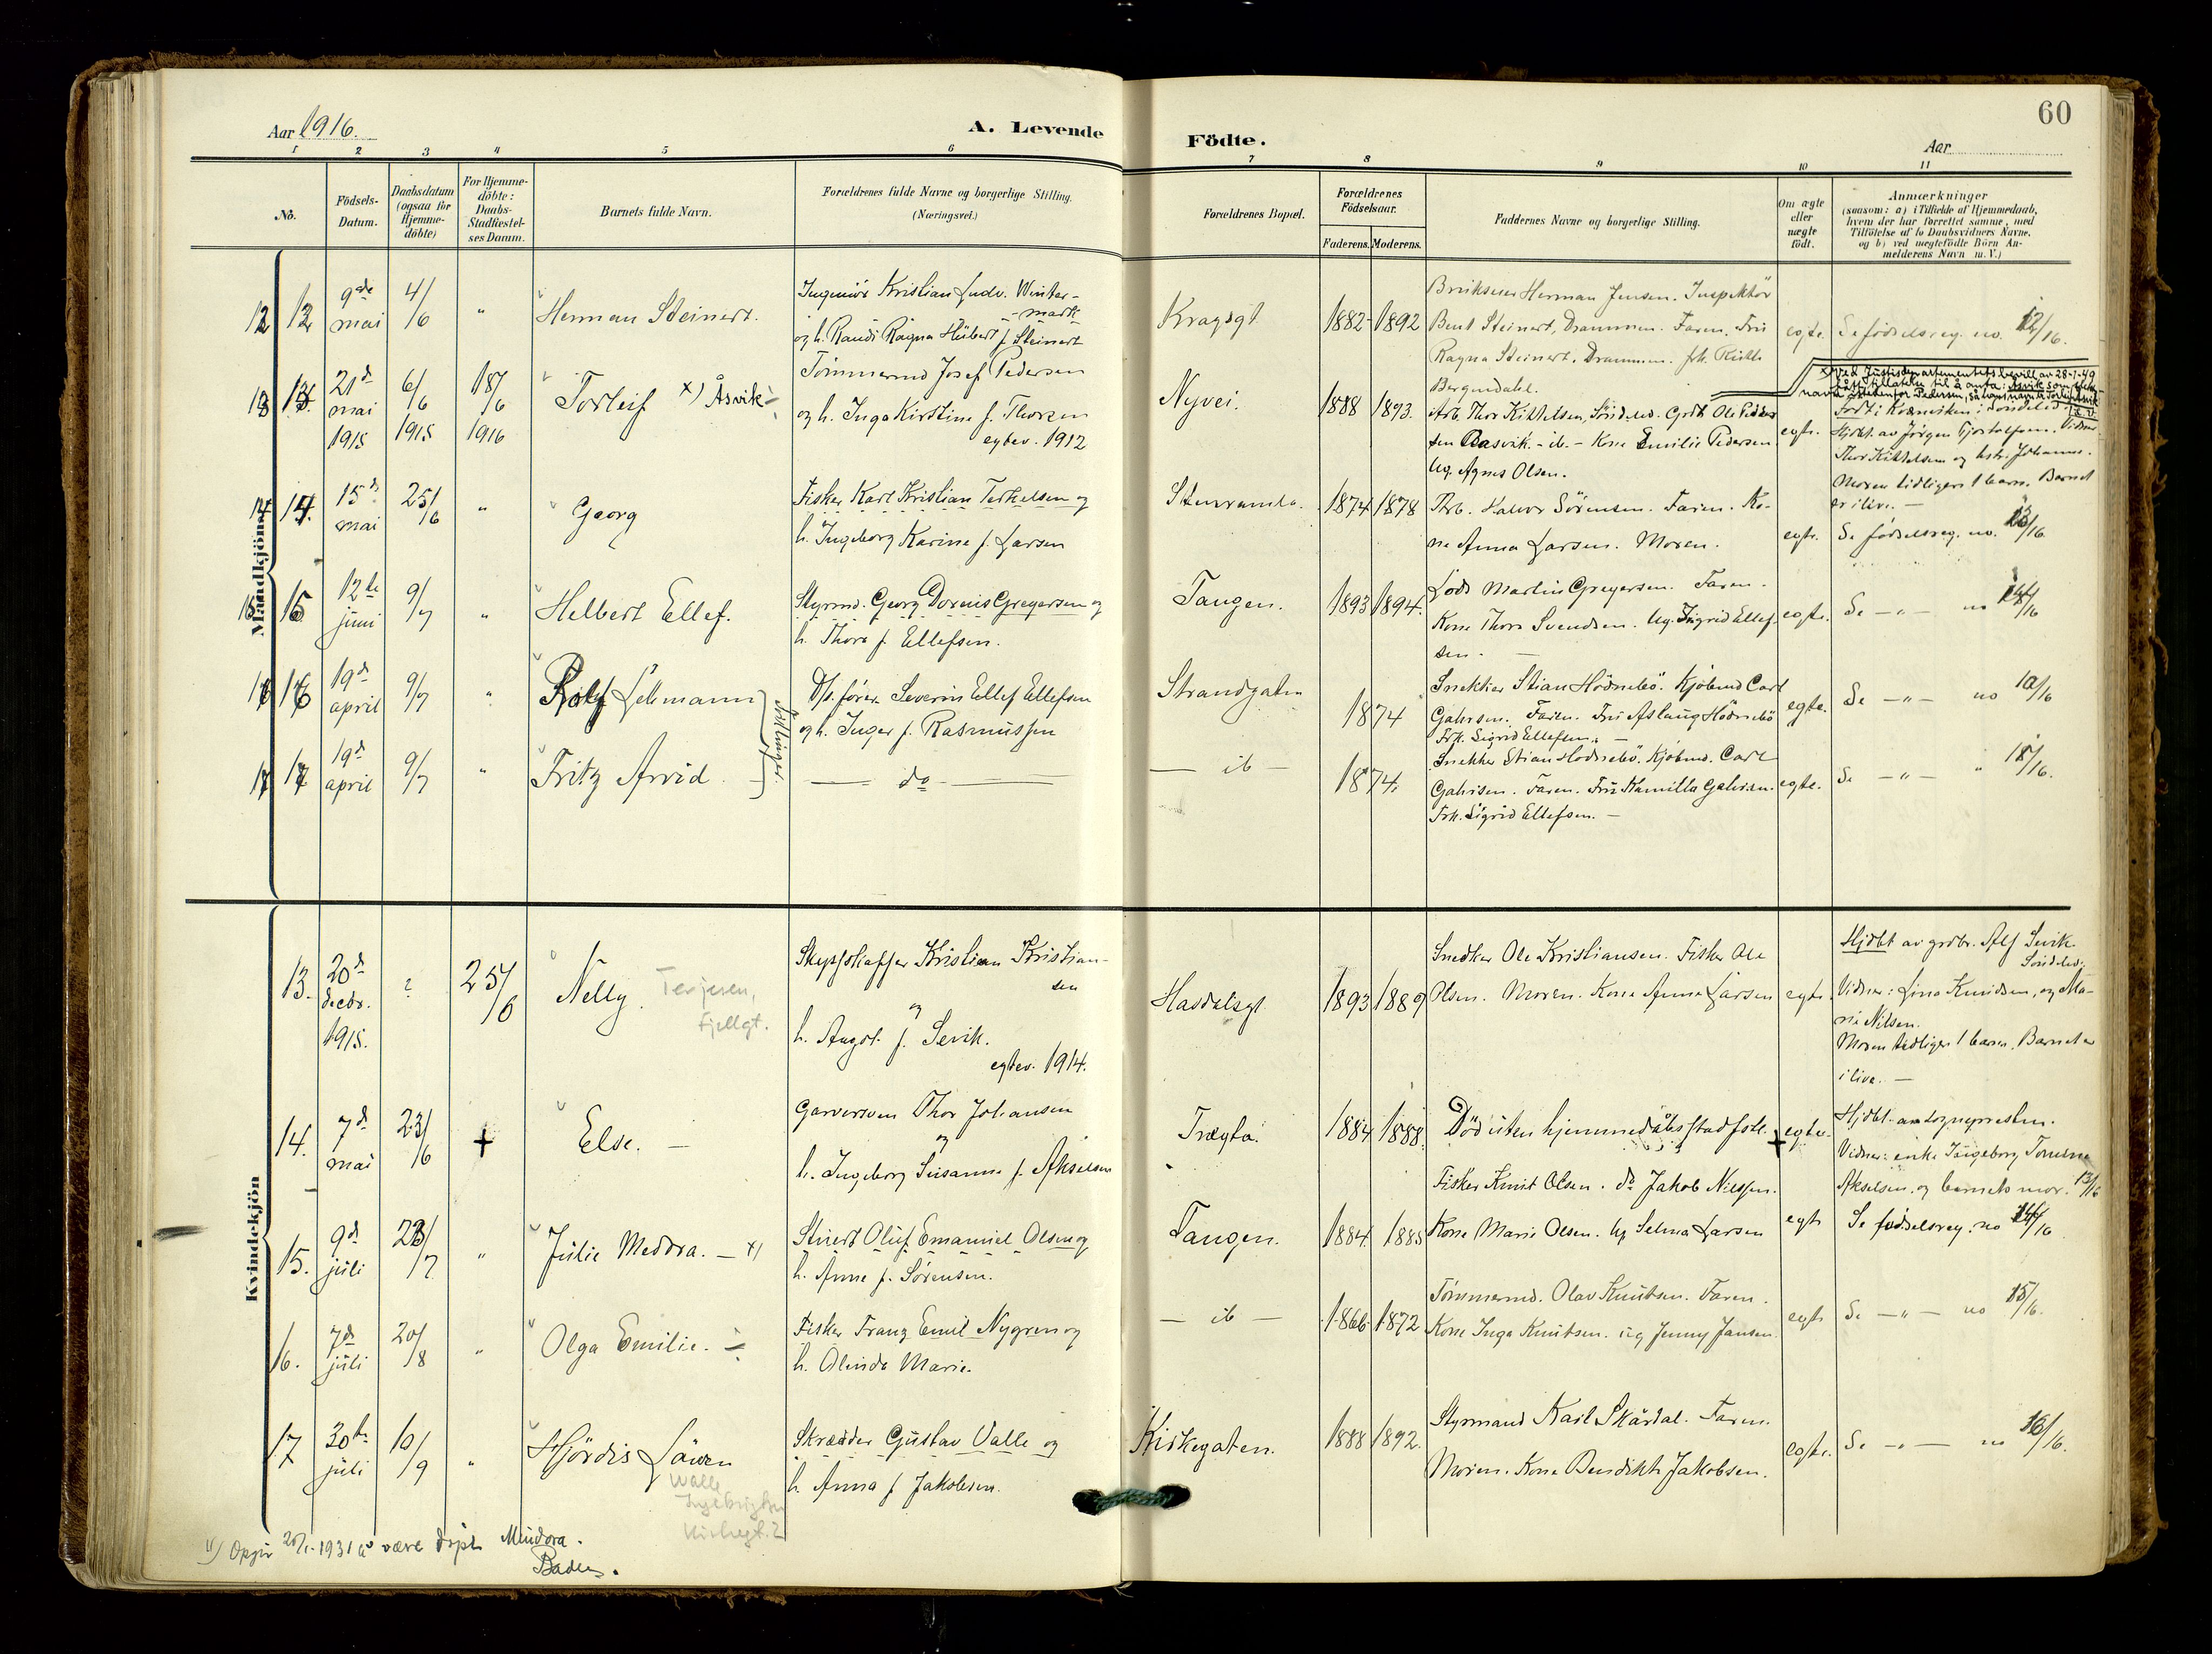 60
Aar 1916.
A. Levende Födte.
Aar
1 2 3 4 5 6 7 8 9 10 11
No.
Födsels-
Datum.
Daabsdatum
(ogsaa for
Hjemme-
döbte)
For Hjemme-
döbte:
Daabs-
Stadfæstel-
ses Datum.
Barnets fulde Navn.
Forældrenes fulde Navne og borgerlige Stilling.
(Næringsvei.)
Forældrenes Bopæl.
Forældrenes
Födselsaar.
Faderens. Moderens.
Faddernes Navne og borgerlige Stilling.
Om ægte
eller
uægte
födt.
Anmærkninger
(saasom: a) i Tilfælde af Hjemmedaab,
hvem der har forrettet samme, med
Tilföielse af to Daabsvidners Navne,
og b) ved uægtefödte Börn An-
melderens Navn m. V.)
Mandkjön
12 12 9de mai 4/6 " Herman Steinert.
Ingeniör Kristian Ludv. Winter-
mark
og h. Randi Ragna Hübert f. Steinert
Kragsgt. 1882 1892
Herman Jensen. Inspektör
Bent Steinert, Drammen. Faren. Fru
Ragna Steinert, Drammen. frk. Ruth
Bergendahl.
egte. Se födselsreg. no. 12/16.
13 13. 21d mai 1915 6/6 1915 18/6 1916 Torleif x) Åsvik
Tömmermd Josef Pedersen
og h. Inga Kirstine f. Thorsen
egtev. 1912
Nyvei. 1888 1893.
Arb. Thor Kittelsen, Söndeled. Grdb. Ole Peder-
sen Aasvik. - ib. - Kone Emilie Pedersen
Ug. Agnes Olsen.
egte.
x) Ved Justisdepartementets bevill. av 28-1-49
fått tillatelse til å anta: Åsvik som slekts-
navn istedenfor Pedersen, så hans navn er Torleif Åsvik
Født i Söndeled.
Hjdbt. av Jörgen Tjostolfsen. Vidner
Thor Kittelsen og hstr. Johanne.
Moren tidligere 1 barn. Barnet
er ilive. —
14 14. 15d mai 25/6 " Georg
Fisker Karl Kristian Terkelsen og
h. Ingeborg Karine f. Larsen
Stenramla. 1874 1878
Arb. Halvor Sörensen. Faren. Ko-
ne Anna Larsen. Moren.
egte. Se födselsreg. no. 13/16
15 15 12te juni 9/7 " Helbert Ellef.
Styrmd. Georg Dorenis Gregersen og
h. Thora f. Ellefsen.
Tangen. 1893 1894.
Lods Martin Gregersen. Faren.
Kone Thora Svendsen. Ug. Ingrid Ellef-
sen. —
egte. Se — " — no 14/16
16 16 19d april 9/7 " Rolf Lehmann
D/s. förer Severin Ellef Ellefsen
og h. Inger f. Rasmussen
Tvillinger.
Strandgaten 1874
Snekker Stian Hödnebö. Kjöbmd Carl
Gahrsen. Faren. Fru Aslaug Hödnebö
Frk. Sigrid Ellefsen. —
egte. Se — " — no 10/16
17 17 19d april 9/7 " Fritz Arvid.
— do —
— ib — 1874.
Snekker Stian Hödnebö. Kjöbmd. Carl
Gahrsen. Faren. Fru Kamilla Gahrsen.
Frk. Sigrid Ellefsen. —
egte. Se — " — " 18/16.
Kvindekjön
13. 20d decbr. 1915. ? 25/6 Nelly. Terjesen,
Fjellgt.
Kristian Kristian-
sen
og
h. Aagot f. Sevik.
egtev. 1914.
Hasdalsgt. 1893 1889
Snedker Ole Kristiansen. Fisker Ole
Olsen. Moren. Kone Anna Larsen
egte
Hjdbt av grdbr. Alf Sevik
Söndeled.
Vidner: Lina Knudsen, og Ma-
rie Nilsen.
Moren tidligere 1 barn. Barnet er
ilive. —
14. 7d mai 23/6 + Else. —
Garversven Thor Johansen
og
h. Ingeborg Susanne f. Akselsen
Trægta. 1884 1888.
Död uten hjemmedåbsstadfest.
egte. +
Hjdbt. av sognepresten.
Vidner: enke Ingeborg
Akselsen, og barnets mor. 13/16
15. 9d juli 23/7 " Julie Meddra. — x)
Stuert Oluf Emanuel Olsen og
h. Anne f. Sörensen.
Tangen. 1884. 1885
Fisker Knut Olsen. do Jakob Nilssen.
Kone Marie Olsen. Ug Selma Larsen
egte Se födselsreg. no 14/16
16. 7d juli 20/8 " Olga Emilie.
Fisker Franz Emil Nygren og
h. Olinda Marie.
— ib — 1866 1872
Tömmermd. Olav Knutsen. Faren.
Kone Inga Knutsen. ug Jenny Jansen.
egte Se — " — no 15/16.
17 30te juli 10/9 " Hjördis Löwen
Walle
Kirkegt. 2
Skrædder Gustav Valle og
h. Anna f Jakobsen.
Kirkegaten. 1888 1892.
Styrmand Karl Skårdal. Faren.
Moren. Kone Bendikte Jakobsen.
egte. Se — " — no 16/16.
x) Opgir 20/1-1931 å være döpt Mendora.